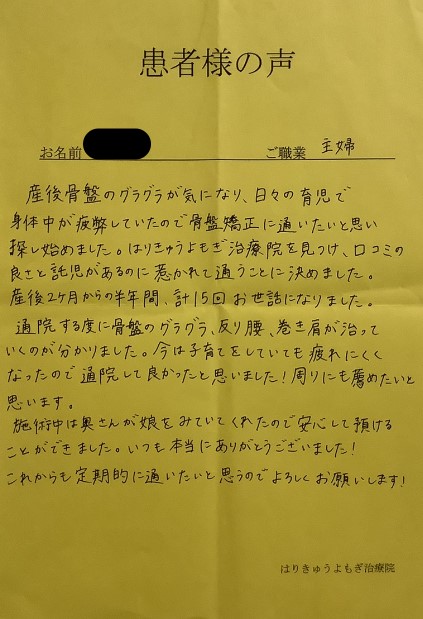 患者様の声
お名前 ご職業 主婦
産後骨盤のグラグラが気になり、日々の育児で
身体中が疲弊していたので骨盤矯正に通いたいと思い
探し始めました。はりきゅうよもぎ治療院を見つけ、口コミの
良さと託児があるのに惹かれて通うことに決めました。
産後2ヶ月からの半年間、計15回お世話になりました。
通院する度に骨盤のグラグラ、反り腰、巻き肩が治って
いくのが分かりました。今は子育てをしていても疲れにくく
なったので通院して良かったと思いました!周りにも薦めたいと
思います。
施術中は奥さんが娘をみていてくれたので安心して預ける
ことができました。いつも本当にありがとうございました!
これからも定期的に通いたいと思うのでよろしくお願いします!
はりきゅうよもぎ治療院